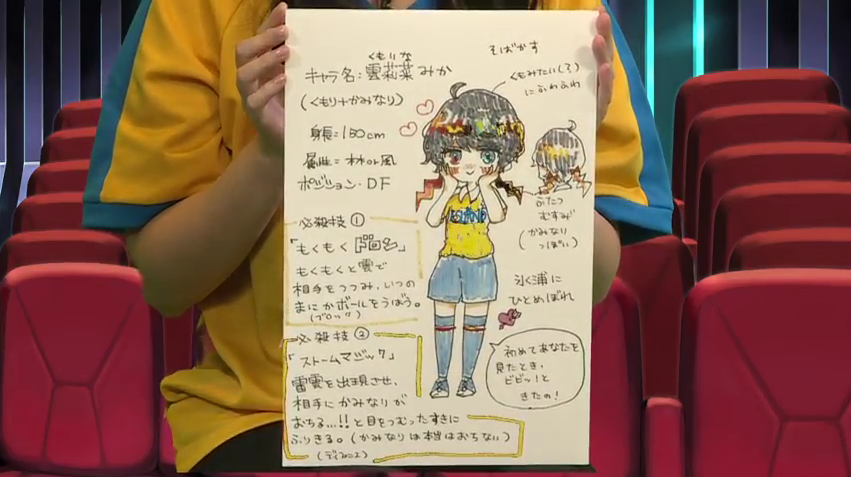 くもりな
キャラ名:雲莉菜みか
(くもり+かみなり)
身長=150cm
属性=林or風
ポジション・DF
必殺技①
「もくもくドロン」
もくもくと雲で
相手をつつみ、いつの
まにかボールをうばう。
(ブロック)
必殺技②
「ストームマジック」
雷雲を出現させ、
相手にかみなりが
おちる…!!と目をつむったすきに
ふりきる。(かみなりは本当はおちない)
そばかす
くもみたい(?)
にふわふわ
ISLAND
ふたつ
むすみが
(かみなり
っぽい)
氷浦に
ひとめぼれ
初めてあなたを
見たとき、
ビビッ!と
きたの!